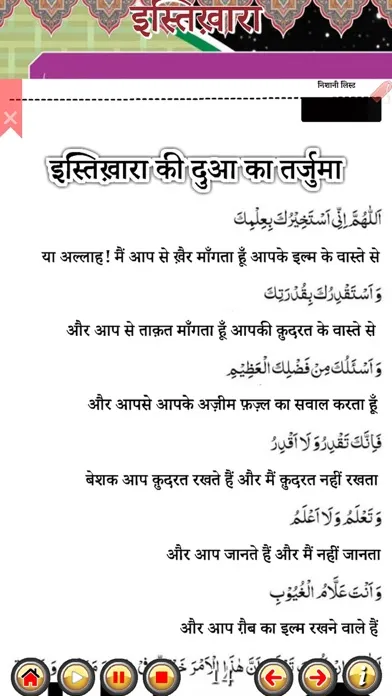 इस्तिख़ारा
निशानी लिस्ट
इस्तिख़ारा की दुआ का तर्जुमा
اَللّٰهُمَّ اِنِّىْ اَسْتَخِيْرُكَ بِعِلْمِكَ
या अल्लाह! मैं आप से ख़ैर माँगता हूँ आपके इल्म के वास्ते से
وَاَسْتَقْدِرُكَ بِقُدْرَتِكَ
और आप से ताक़त माँगता हूँ आपकी क़ुदरत के वास्ते से
وَاَسْئَلُكَ مِنْ فَضْلِكَ الْعَظِيْمِ
और आपसे आपके अज़ीम फ़ज़्ल का सवाल करता हूँ
فَاِنَّكَ تَقْدِرُ وَلَا اَقْدِرُ
बेशक आप क़ुदरत रखते हैं और मैं क़ुदरत नहीं रखता
وَتَعْلَمُ وَلَا اَعْلَمُ
और आप जानते हैं और मैं नहीं जानता
وَاَنْتَ عَلَّامُ الْغُيُوْبِ
और आप ग़ैब का इल्म रखने वाले हैं
هٰذَا الْاَمْرَ
14